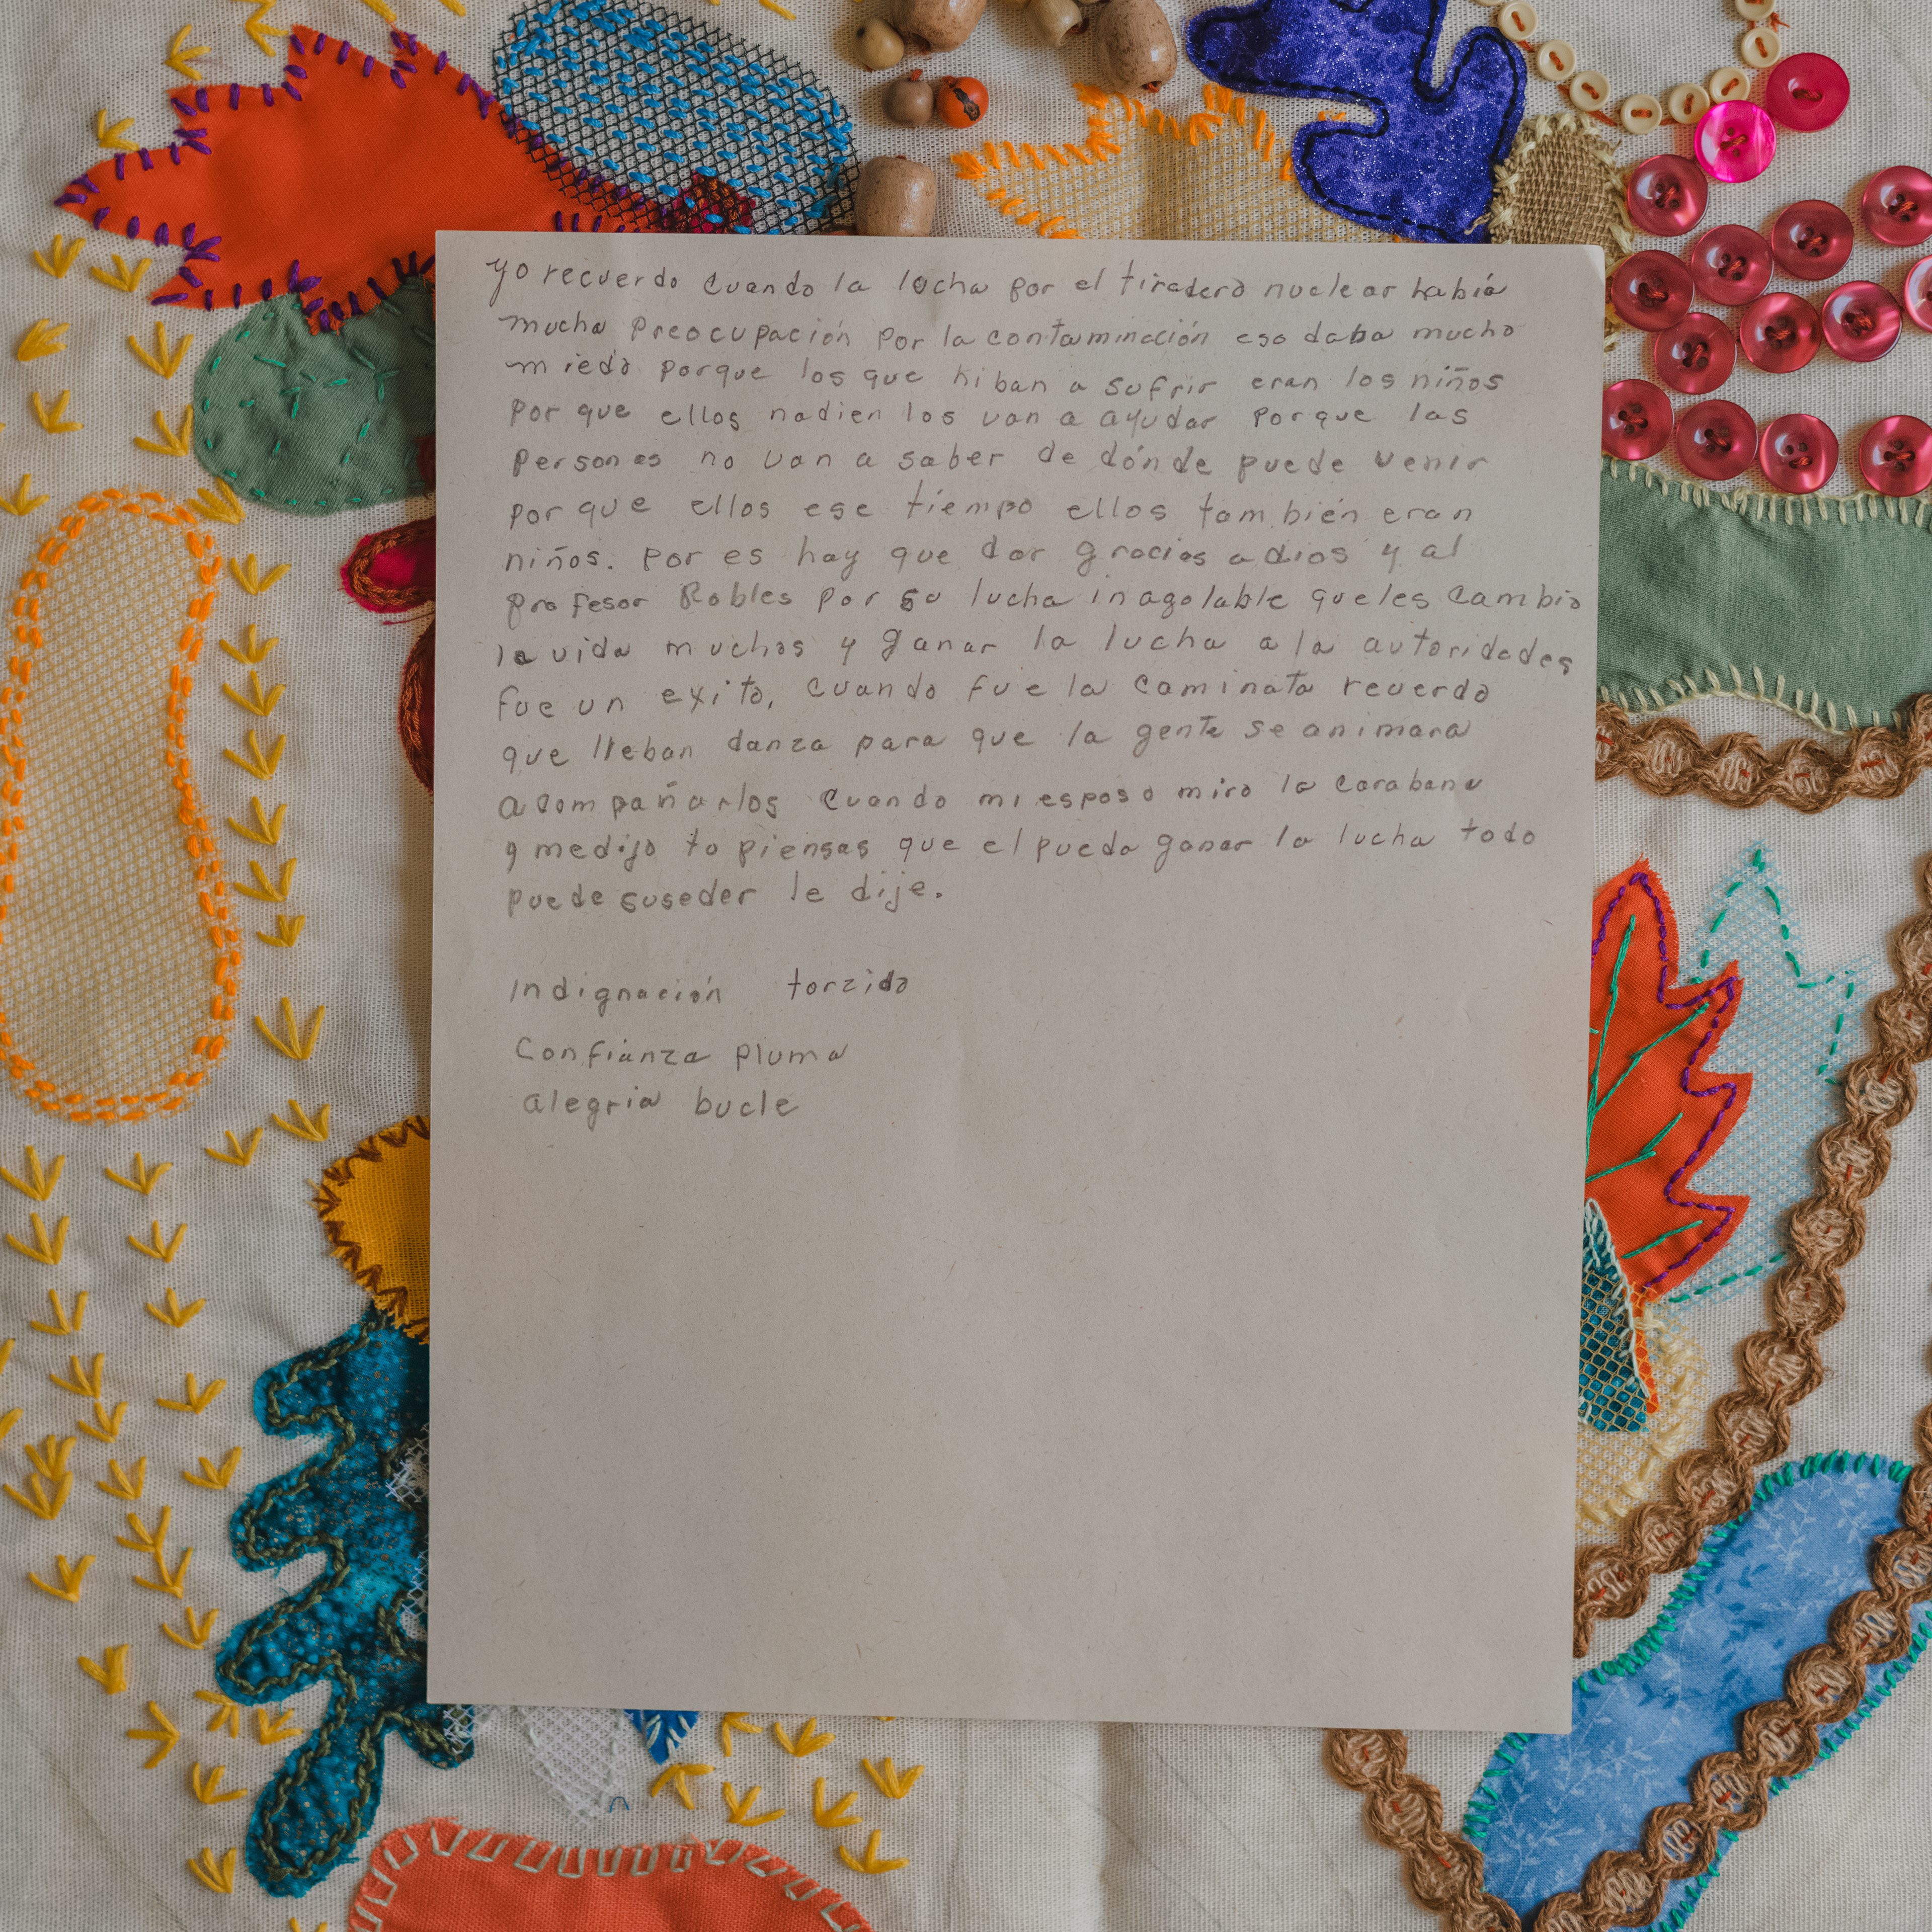 yo recuerdo cuando la lucha por el tiradero nuclear había
mucha preocupación por la contaminación eso daba mucho
miedo porque los que hiban a sufrir eran los niños
por que ellos nadien los van a ayudar porque las
personas no van a saber de dónde puede venir
porque ellos ese tiempo ellos también eran
niños. por es hay que dar gracias a dios y al
profesor Robles por su lucha inagolable que les cambio
la vida muchos y ganar la lucha a la autoridades
fue un exito, cuando fue la caminata recuerdo
que lleban danza para que la gente se animara
acompañarlos cuando mi esposo miro la carabana
y me dijo tu piensas que el pueda ganar la lucha todo
puede suseder le dije.
Indignación torzido
Confianza pluma
alegria bucle